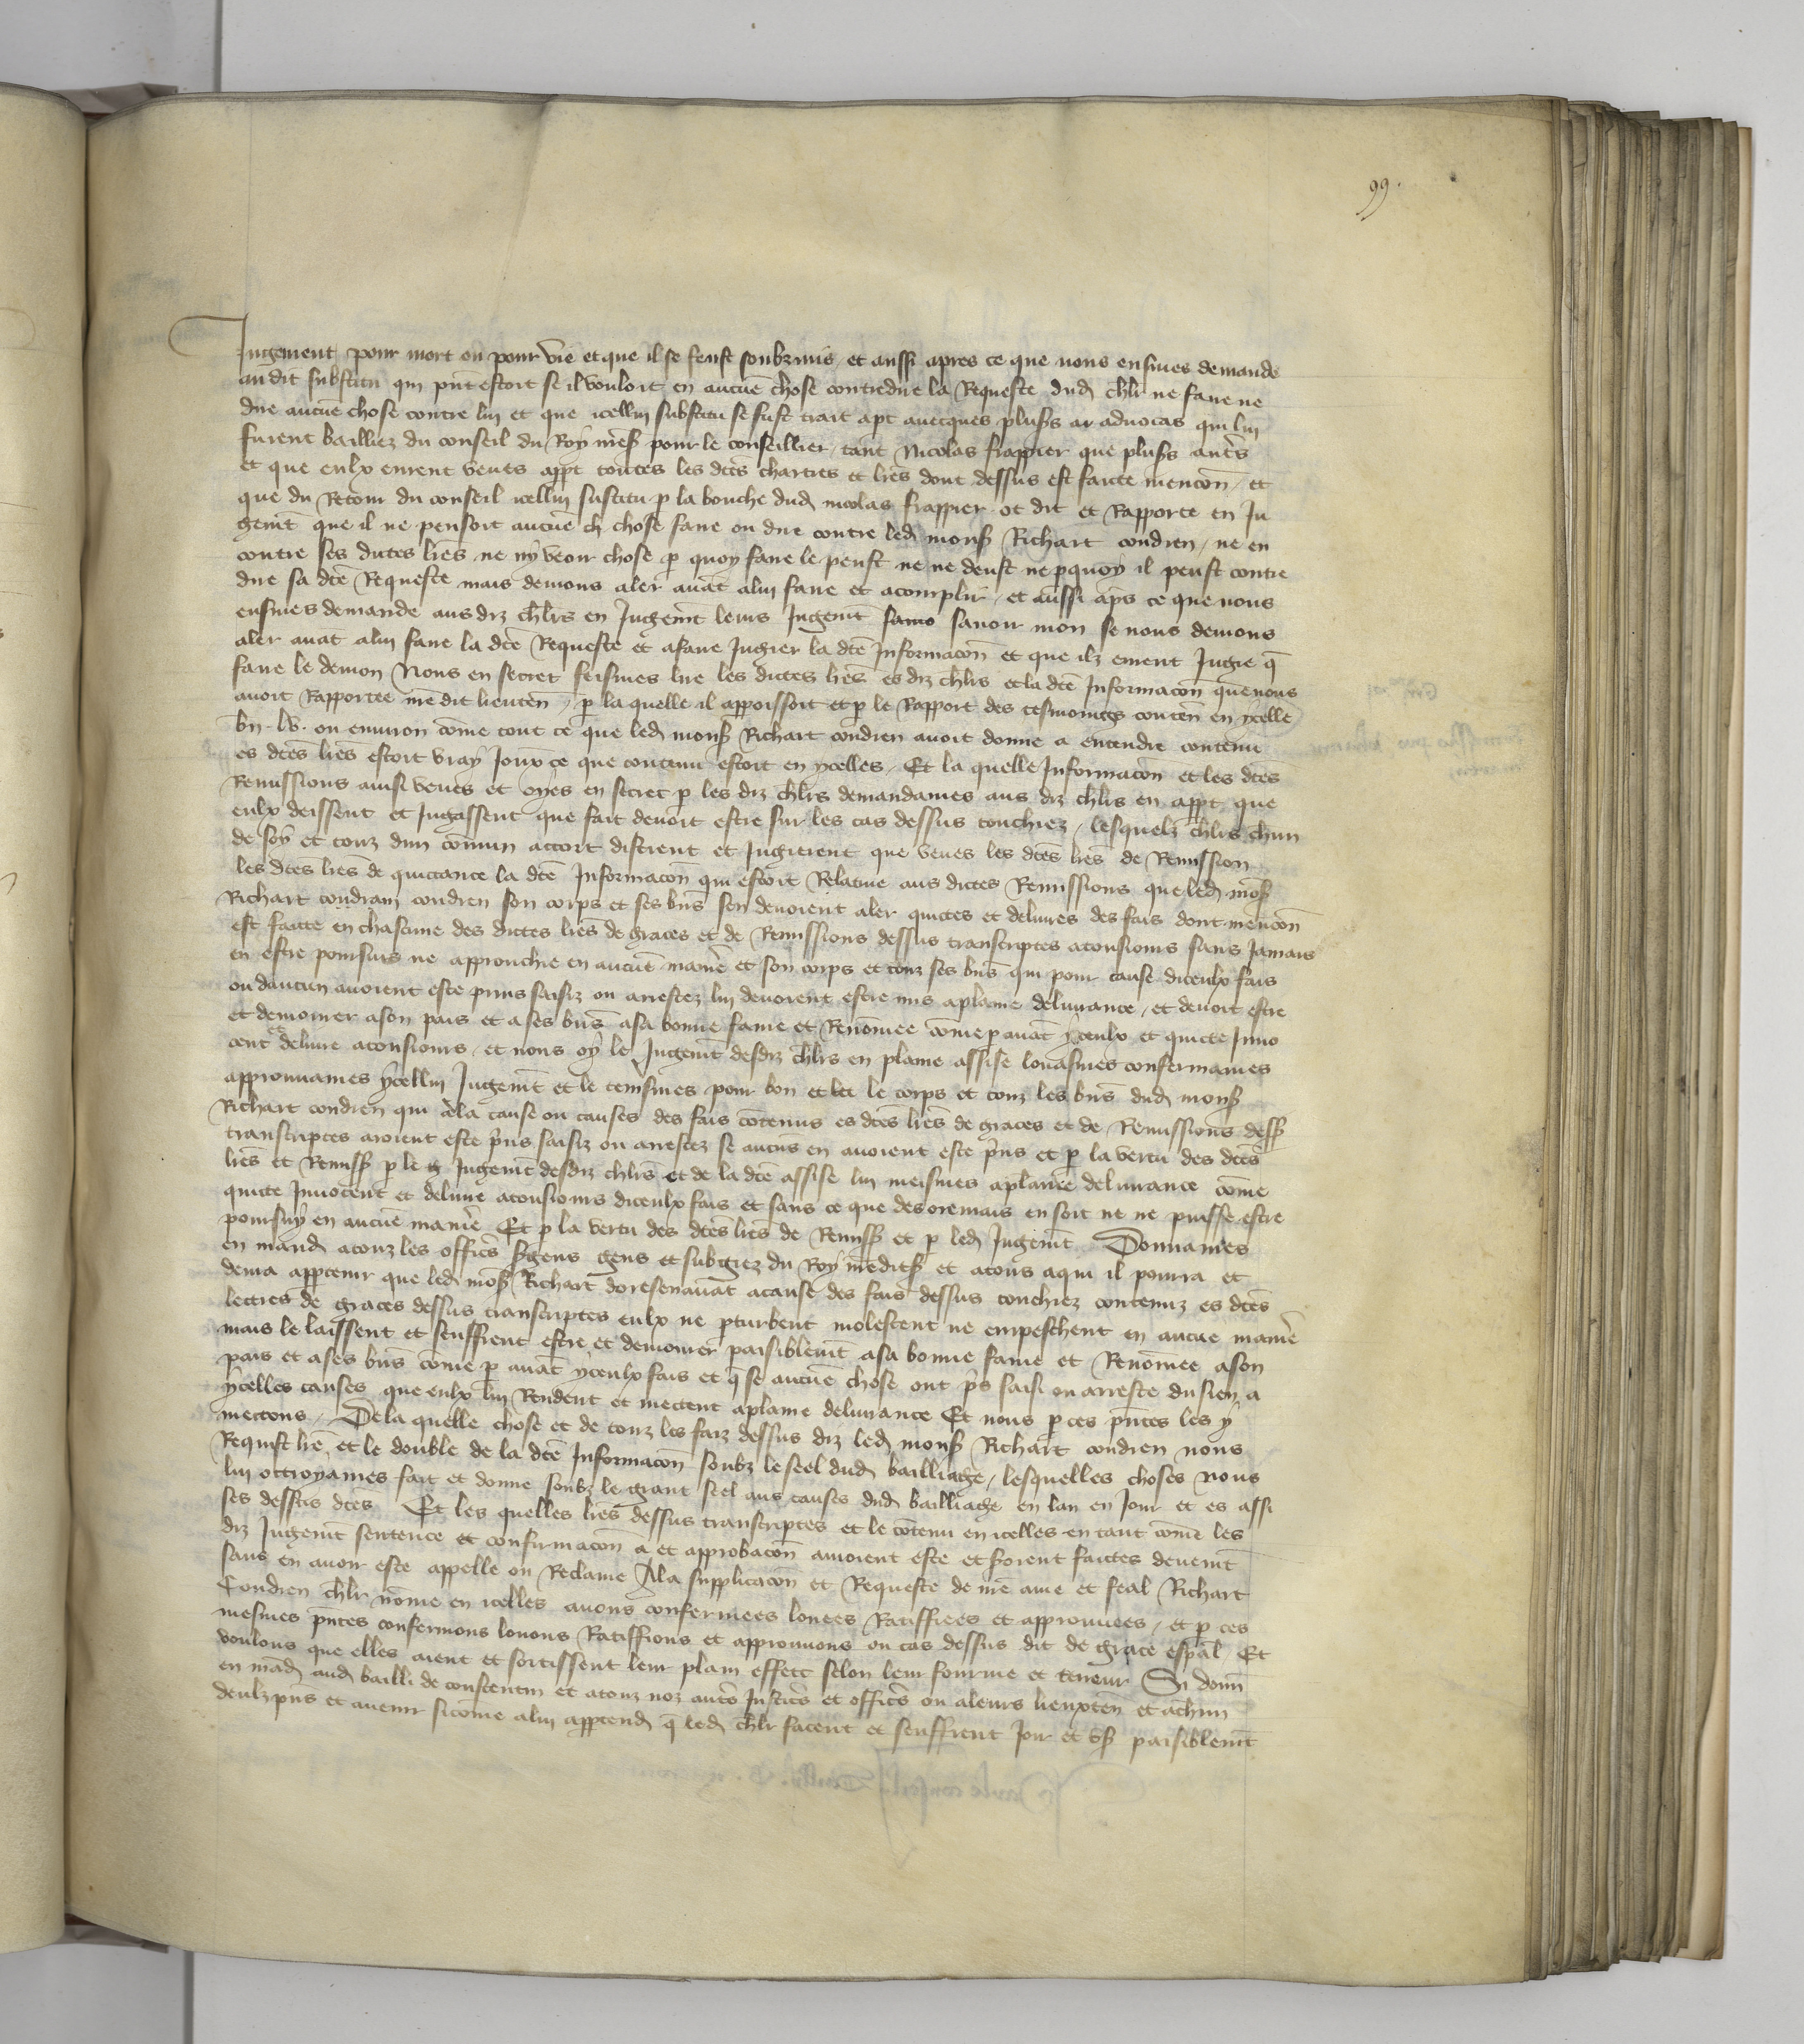 99.
Jugement pour mort ou pour vie et que il se feust soubzmis et aussi apres ce que nous eusmes demande
audit substitu qui pn̄t estoit se il vouloit en aucūe chose contredire la Requeste dud chlr ne faire ne
dire aucūe chose contre lui et que icellui substitu se fust trait apt avecques plus̄s ar advocas qui lui
furent bailliez du conseil du Roy mess pour le conseillier tant Nicolas frappier que plus̄s autr̄s
et que eulx eurent veues appt toutes les dctēs chartres et lr̄es dont dessus est faicte mencōn / et
que du Retour du conseil icellui sustitu p la bouche dud nicolas frappier ot dit et Rapporte en Ju
gem̄t que il ne pensoit aucūe ch chose faire ou dire contre led mons Richart condren / ne en
contre ses dictes lr̄es ne ny veoir chose p quoy faire le peust ne ne deust ne p quoy il peust contre
dire sa dctē Requeste mais devions aler avāt a lui faire et acomplir / et aussi ap̄s ce que nous
eusmes demande aus diz chlr̄s en Jugem̄t leurs Jugem̄t savo savoir mon se nous devions
aler avāt a lui faire la dctē Requeste et a faire Jugier la dctē Informacōn et que ilz eurent Jugie q̄
faire le devion Nous en secret feismes lire les dictes lr̄es es diz chlr̄s et la dctē Informacōn que nous
avoit Rapportee nr̄e dit lieuten̄ / p la quelle il apparissoit et p le Rapport des tesmoings conten̄ en ycelle
bn . lv . ou environ cōme tout ce que led mons Richart condren avoit donne a entendre contenu
es dctēs lr̄es estoit vray Joux ce que contenu estoit en ycelles / Et la quelle Informacōn et les dctēs
Remissions ainsi veues et oyes en secret p les diz chlr̄s demandames aus diz chlr̄s en appt que
eulx deissent et Jugassent que fait devoit estre sur les cas dessus touchiez / lesquelz chlr̄s chun
de soy et touz dun cōmun accort distrent et Jugierent que veues les dctēs lr̄es de Remission
les dctēs lr̄es de quittance la dctē Informacōn qui estoit Relative aus dictes Remissions que led mōs
Richart condrain condren son corps et ses bn̄s sen devoient aler quictes et delivres des fais dont mencōn
est faicte en chascune des dictes lr̄es de graces et de Remissions dessus transcriptes a tousiours sans Jamais
en estre poursuis ne approuchie en aucūe manie᷑ et son corps et touz ses bn̄s qui pour cause diceulx fais
ou daucun avoient este prins saisiz ou arrestez lui devoient estre mis a plaine delivrance / et devoit estre
et demourer a son pais et a ses bn̄s a sa bonne fame et Renōmee cōme p avāt yceulx et quicte Inno
cent et delivre a tousiours / et nous oy le Jugem̄t desdiz chlr̄s en plaine assise louasmes confermames
approuvames ycellui Jugem̄t et le tenismes pour bon et bet le corps et touz les bn̄s dud mons
Richart condren qui a la cause ou causes des fais cōtenus es dctēs lr̄es de graces et de Remissions dess
transcriptes avoient este prins saisiz ou arrestez se aucūs en avoient este prins et p la vertu des dctēs
lr̄es et Remiss p le g Jugem̄t desdiz chlr̄s et de la dctē assise lui meismes a plaine delivrance cōme
quicte Innocent et delivre a tousiours diceulx fais et sans ce que desoremais en soit ne ne puisse estre
poursuy en aucūe manie᷑ Et p la vertu des dctēs lr̄es de Remiss et p led Jugem̄t Donnames
en mand a touz les offic̄s sgens gens et subgiez du Roy nr̄edits et a tous a qui il pourra et
devra appte nir que led mōs Richart doresenavāt a cause des fais dessus touchiez contenuz es dctēs
lectres de graces dessus transcriptes eulx ne pturbent molestent ne empeschent en aucue manie᷑
mais le laissent et seuffrent estre et demourer paisiblem̄t a sa bonne fame et Renōmee a son
pais et a ses bn̄s cōme p avāt yceulx fais et q̄ se aucūe chose ont p̄s saisi ou arreste du sien a
ycelles causes que eulx lui Rendent et mectent a plaine delivrance Et nous p ces pn̄tes les y
mectons / De la quelle chose et de touz les faiz dessus diz led mons Richart condren nous
Requist lr̄e et le double de la dctē Informacōn soubz le seel dud bailliage / lesquelles choses nous
lui octroyames fait et donne soubz le grant seel aus causes dud bailliage en lan en Jour et es assi
ses dessus dctēs Et les quelles lr̄es dessus transcriptes et le cōtenu en icelles en tant cōme les
diz Jugem̄t sentence et confirmacōn a et approbacōn auroient este et seroient faictes deuem̄t
sans en avoir este appelle ou Reclame A la supplicacōn et Requeste de nr̄e ame et feal Richart
Condren chlr nōme en icelles avons confermees louees Ratiffiees et approuvees / et p ces
mesmes pn̄tes confermons louons Ratiffions et approuvons ou cas dessus dit de grace esp̄al / Et
voulons que elles aient et sortissent leur plain effect selon leur fourme et teneur Si donn̄
en mād aud bailli de constentin et a touz noz autr̄s Justic̄s et offic̄s ou a leurs lieuxten̄ et a chun
deulz pn̄s et avenir sicōme a lui apptend q̄ led chlr facent et seuffrent Joir et us paisiblem̄t